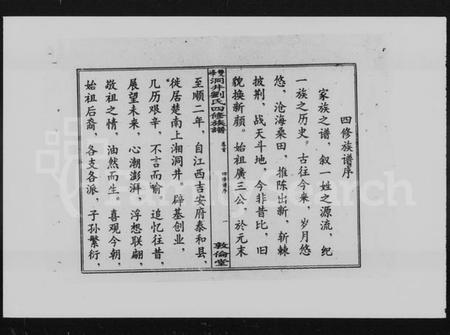 四修族谱序
家族之谱，叙一姓之源流，纪
一族之历史。古往今来，岁月悠
悠，沧海桑田，推陈出新，斩棘
披荆，战天斗地，今非昔比，旧
貌换新颜。始祖廣三公，於元末
雙峰洞井劉氏四修族譜
一
敦倫堂
至顺二年，自江西吉安府泰和县，
徙居楚南上湘洞井，辟基创业，
几历艰辛，不言而喻，追忆往昔，
展望未来，心潮澎湃，浮想联翩，
敬祖之情，油然而生。喜观今朝，
始祖后裔，各支各派，子孙繁衍，
FamilySearch